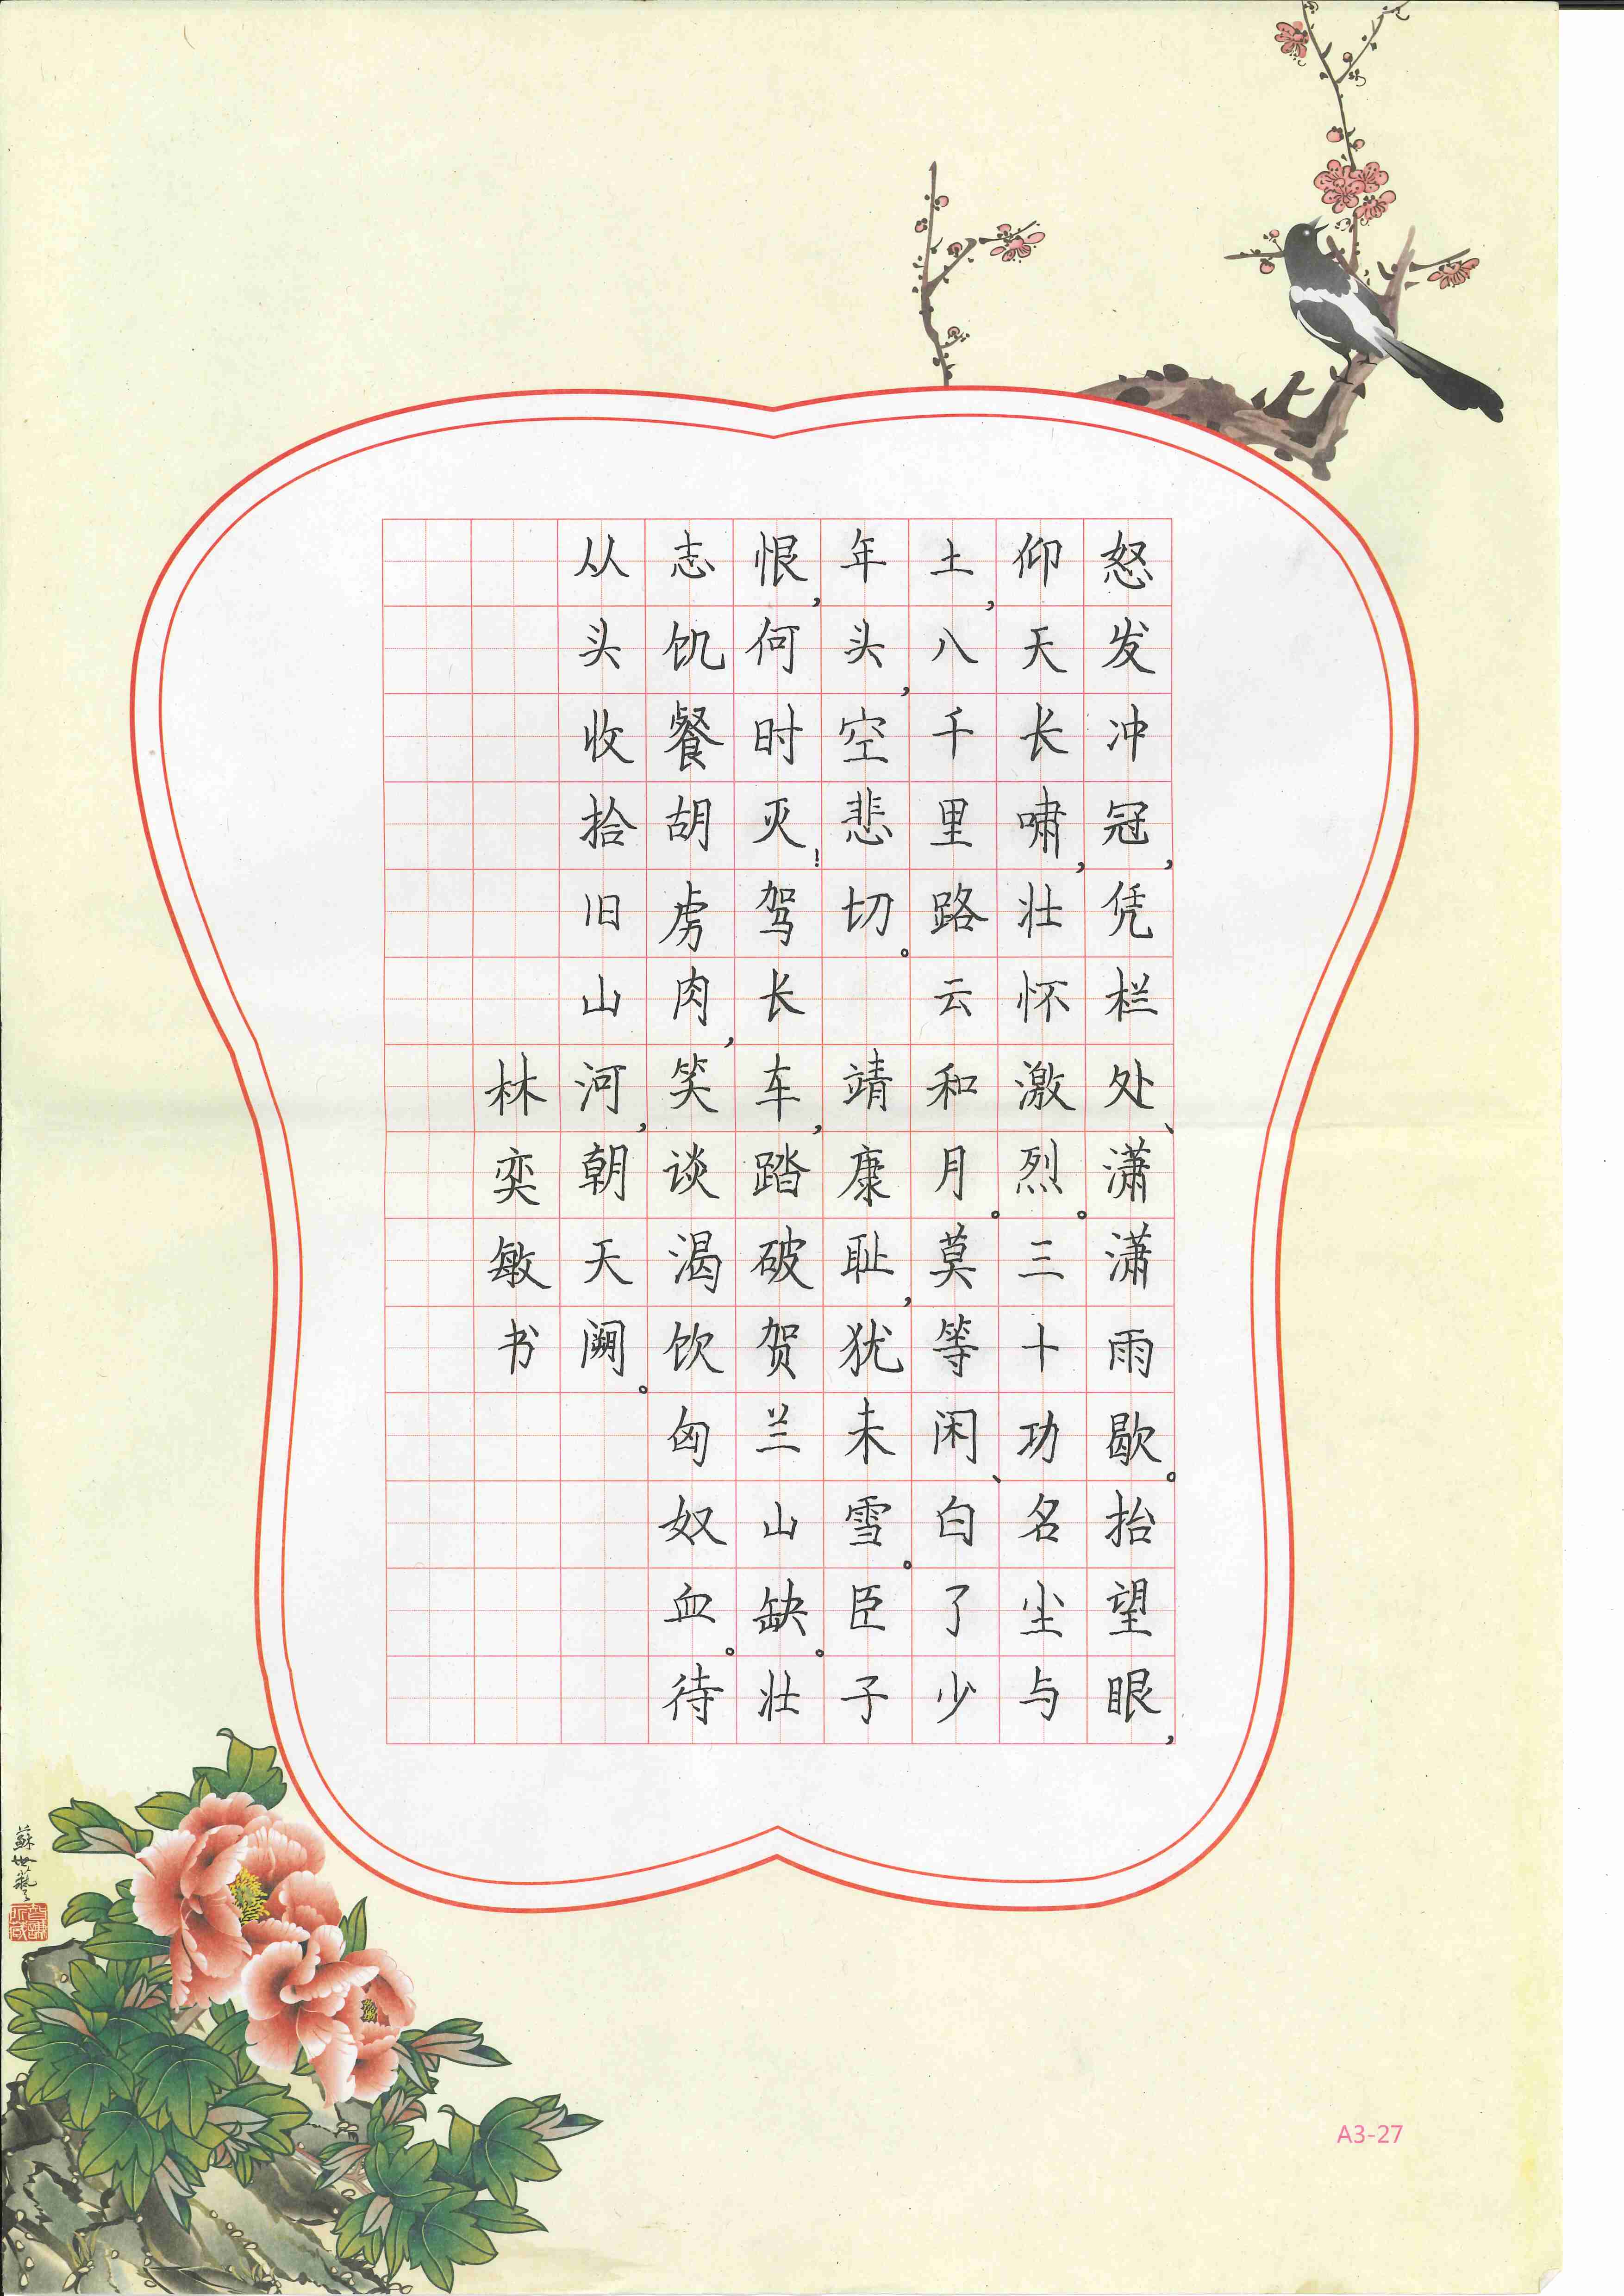 怒发冲冠，凭栏处、潇潇雨歇。抬望眼，
仰天长啸，壮怀激烈。三十功名尘与
土，八千里路云和月。莫等闲、白了少
年头，空悲切。 靖康耻，犹未雪。臣子
恨，何时灭！驾长车，踏破贺兰山缺。壮
志饥餐胡虏肉，笑谈渴饮匈奴血。待
从头收拾旧山河，朝天阙。
林奕敏书
蘇世藝
A3-27